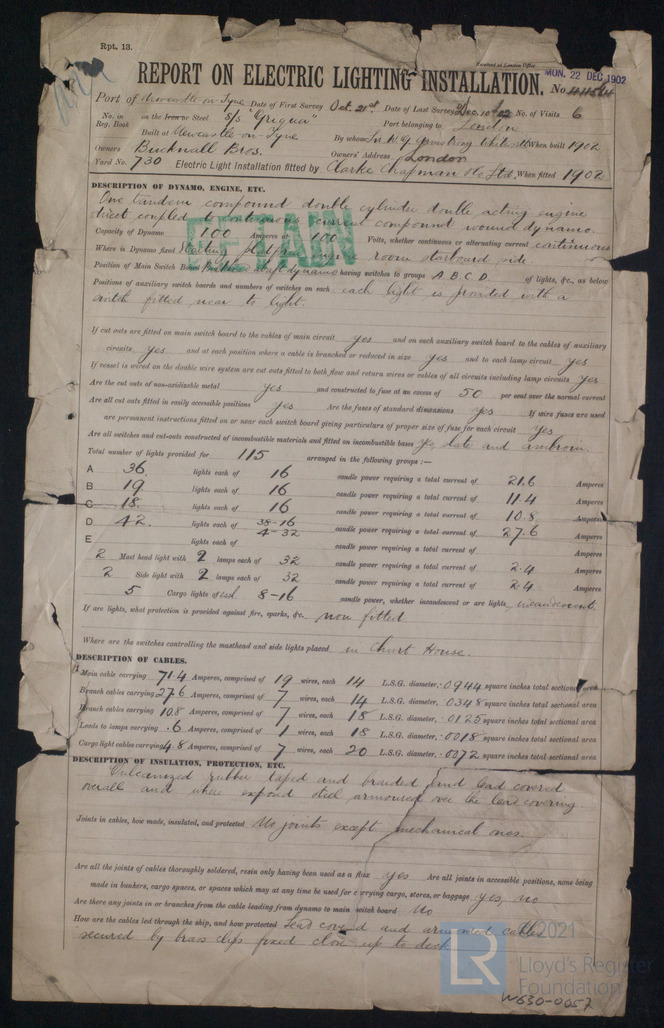 Rpt. 13.
Received at London Office
REPORT ON ELECTRIC LIGHTING INSTALLATION. No.
MON. 22 DEC 1902
Port of Newcastle-on-Tyne Date of First Survey Oct. 21st Date of Last Survey Dec. 10th 02 No. of Visits 6
No. in Reg. Book on the Iron or Steel S/S "Griqua" Port belonging to London
Built at Newcastle-on-Tyne By whom Sir W. G. Armstrong Whitworth When built 1902
Owners Bucknall Bros. Owners' Address London
Yard No. 730 Electric Light Installation fitted by Clarke Chapman & Co Ltd. When fitted 1902
DESCRIPTION OF DYNAMO, ENGINE, ETC.
One tandem compound double cylinder double acting engine
direct coupled to continuous current compound wound dynamo.
Capacity of Dynamo 100 Amperes at 100 Volts, whether continuous or alternating current continuous
Where is Dynamo fixed platform engine room starboard side
Position of Main Switch Board dynamo having switches to groups A. B. C. D of lights, &c., as below
Positions of auxiliary switch boards and numbers of switches on each each light is provided with a
switch fitted near to light.
If cut outs are fitted on main switch board to the cables of main circuit yes and on each auxiliary switch board to the cables of auxiliary
circuits yes and at each position where a cable is branched or reduced in size yes and to each lamp circuit yes
If vessel is wired on the double wire system are cut outs fitted to both flow and return wires or cables of all circuits including lamp circuits yes
Are the cut outs of non-oxidizable metal yes and constructed to fuse at an excess of 50 per cent over the normal current
Are all cut outs fitted in easily accessible positions yes Are the fuses of standard dimensions yes If wire fuses are used
are permanent instructions fitted on or near each switch board giving particulars of proper size of fuse for each circuit yes
Are all switches and cut-outs constructed of incombustible materials and fitted on incombustible bases Yes, slate and
Total number of lights provided for 115 arranged in the following groups :—
A 36 lights each of 16 candle power requiring a total current of 21.6 Amperes
B 19 lights each of 16 candle power requiring a total current of 11.4 Amperes
C 18 lights each of 16 candle power requiring a total current of 10.8 Amperes
D 42. lights each of 38-16 4-32 candle power requiring a total current of 27.6 Amperes
E lights each of candle power requiring a total current of Amperes
2 Mast head light with 2 lamps each of 32 candle power requiring a total current of 2.4 Amperes
2 Side light with 2 lamps each of 32 candle power requiring a total current of 2.4 Amperes
5 Cargo lights of each 8-16 candle power, whether incandescent or arc lights incandescent.
If arc lights, what protection is provided against fire, sparks, &c. non fitted
Where are the switches controlling the masthead and side lights placed in Chart House.
DESCRIPTION OF CABLES.
Main cable carrying 71.4 Amperes, comprised of 19 wires, each 14 L.S.G. diameter, .0944 square inches total sectional area
Branch cables carrying 27.6 Amperes, comprised of 7 wires, each 14 L.S.G. diameter, .0348 square inches total sectional area
Branch cables carrying 10.8 Amperes, comprised of 7 wires, each 18 L.S.G. diameter, .0125 square inches total sectional area
Leads to lamps carrying .6 Amperes, comprised of 1 wires, each 18 L.S.G. diameter, .0018 square inches total sectional area
Cargo light cables carrying 4.8 Amperes, comprised of 7 wires, each 20 L.S.G. diameter, .0072 square inches total sectional area
DESCRIPTION OF INSULATION, PROTECTION, ETC.
Vulcanized rubber taped and braided and lead covered
overall and where exposed steel armoured over the lead covering
Joints in cables, how made, insulated, and protected No joints except mechanical ones.
Are all the joints of cables thoroughly soldered, resin only having been used as a flux yes Are all joints in accessible positions, none being
made in bunkers, cargo spaces, or spaces which may at any time be used for carrying cargo, stores, or baggage yes, no
Are there any joints in or branches from the cable leading from dynamo to main switch board No
How are the cables led through the ship, and how protected Lead covered and armoured cables
secured by brass clips fixed close up to deck
RETAIN
© 2021
LR
Lloyd's Register
Foundation
W630-0057